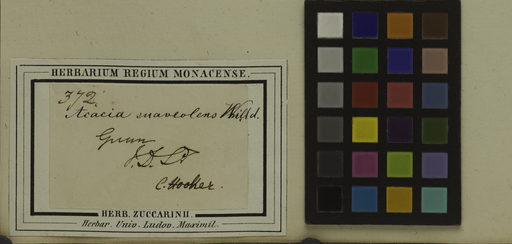 HERBARIUM REGIUM MONACENSE.
372.
Acacia suaveolens Willd.
Gunn
C. Hooker.
HERB. ZUCCARINII.
Herbar. Univ. Ludov. Maximil.